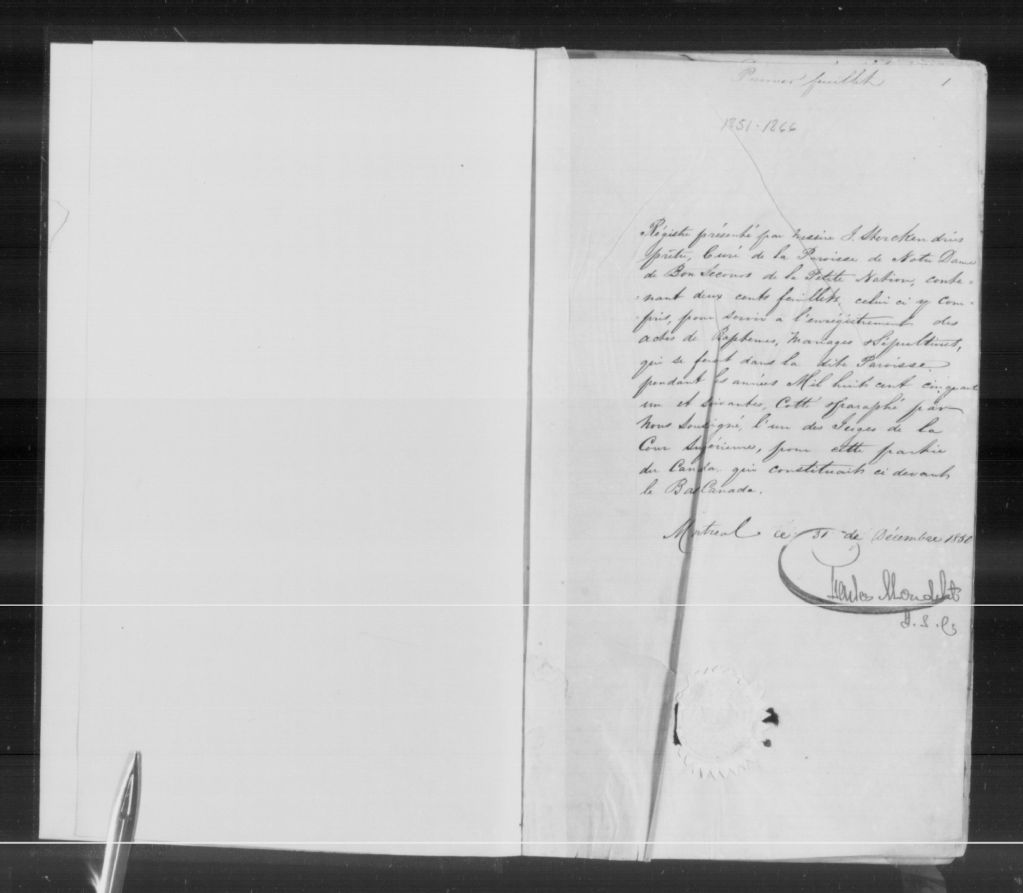 Premier feuillet 1
1851-1866
Régistre présenté par Messire J. Sterckendries
prêtre, Curé de la Paroisse de Notre Dame
de Bon Secours de la Petite Nation, conte-
-nant deux cents feuillets celui ci y Com-
-pris, pour servir a l'enrégistrement des
actes de Baptêmes, Mariages & Sépultures,
qui se feront dans la dite Paroisse
pendant les années Mil huit cent cinquante
un et suivantes, Cotté & paraphé par
Nous Soussigné, l'un des Juges de la
Cour Supérieure, pour cette partie
du Canada qui constituait ci devant
le Bas Canada.
Montreal ce 31 de Décembre 1850
Charles Mondelet
J. S. C.